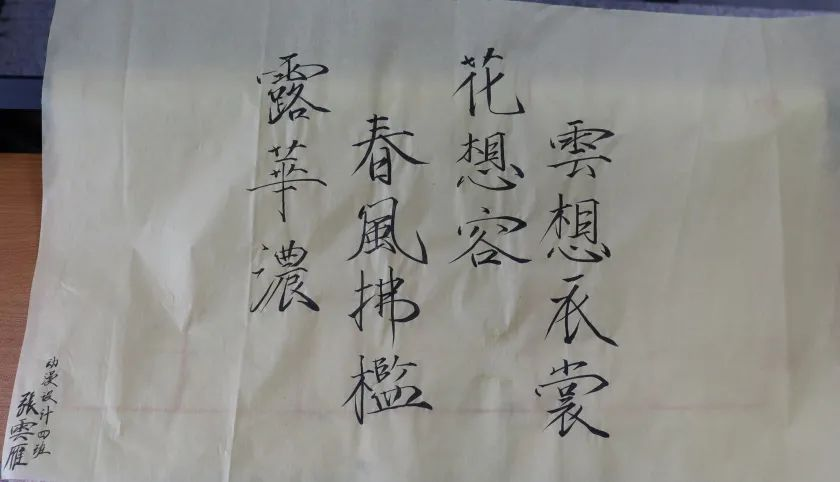 雲想衣裳
花想容
春風拂檻
露華濃
动漫设计四班
張雲雁